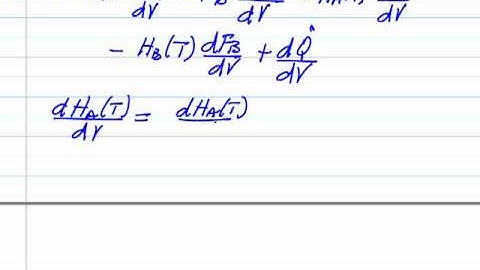 dV dV dV
- H_B(T) dF_B/dV + dQ̇/dV
dH_A(T)/dV = dH_A(T)